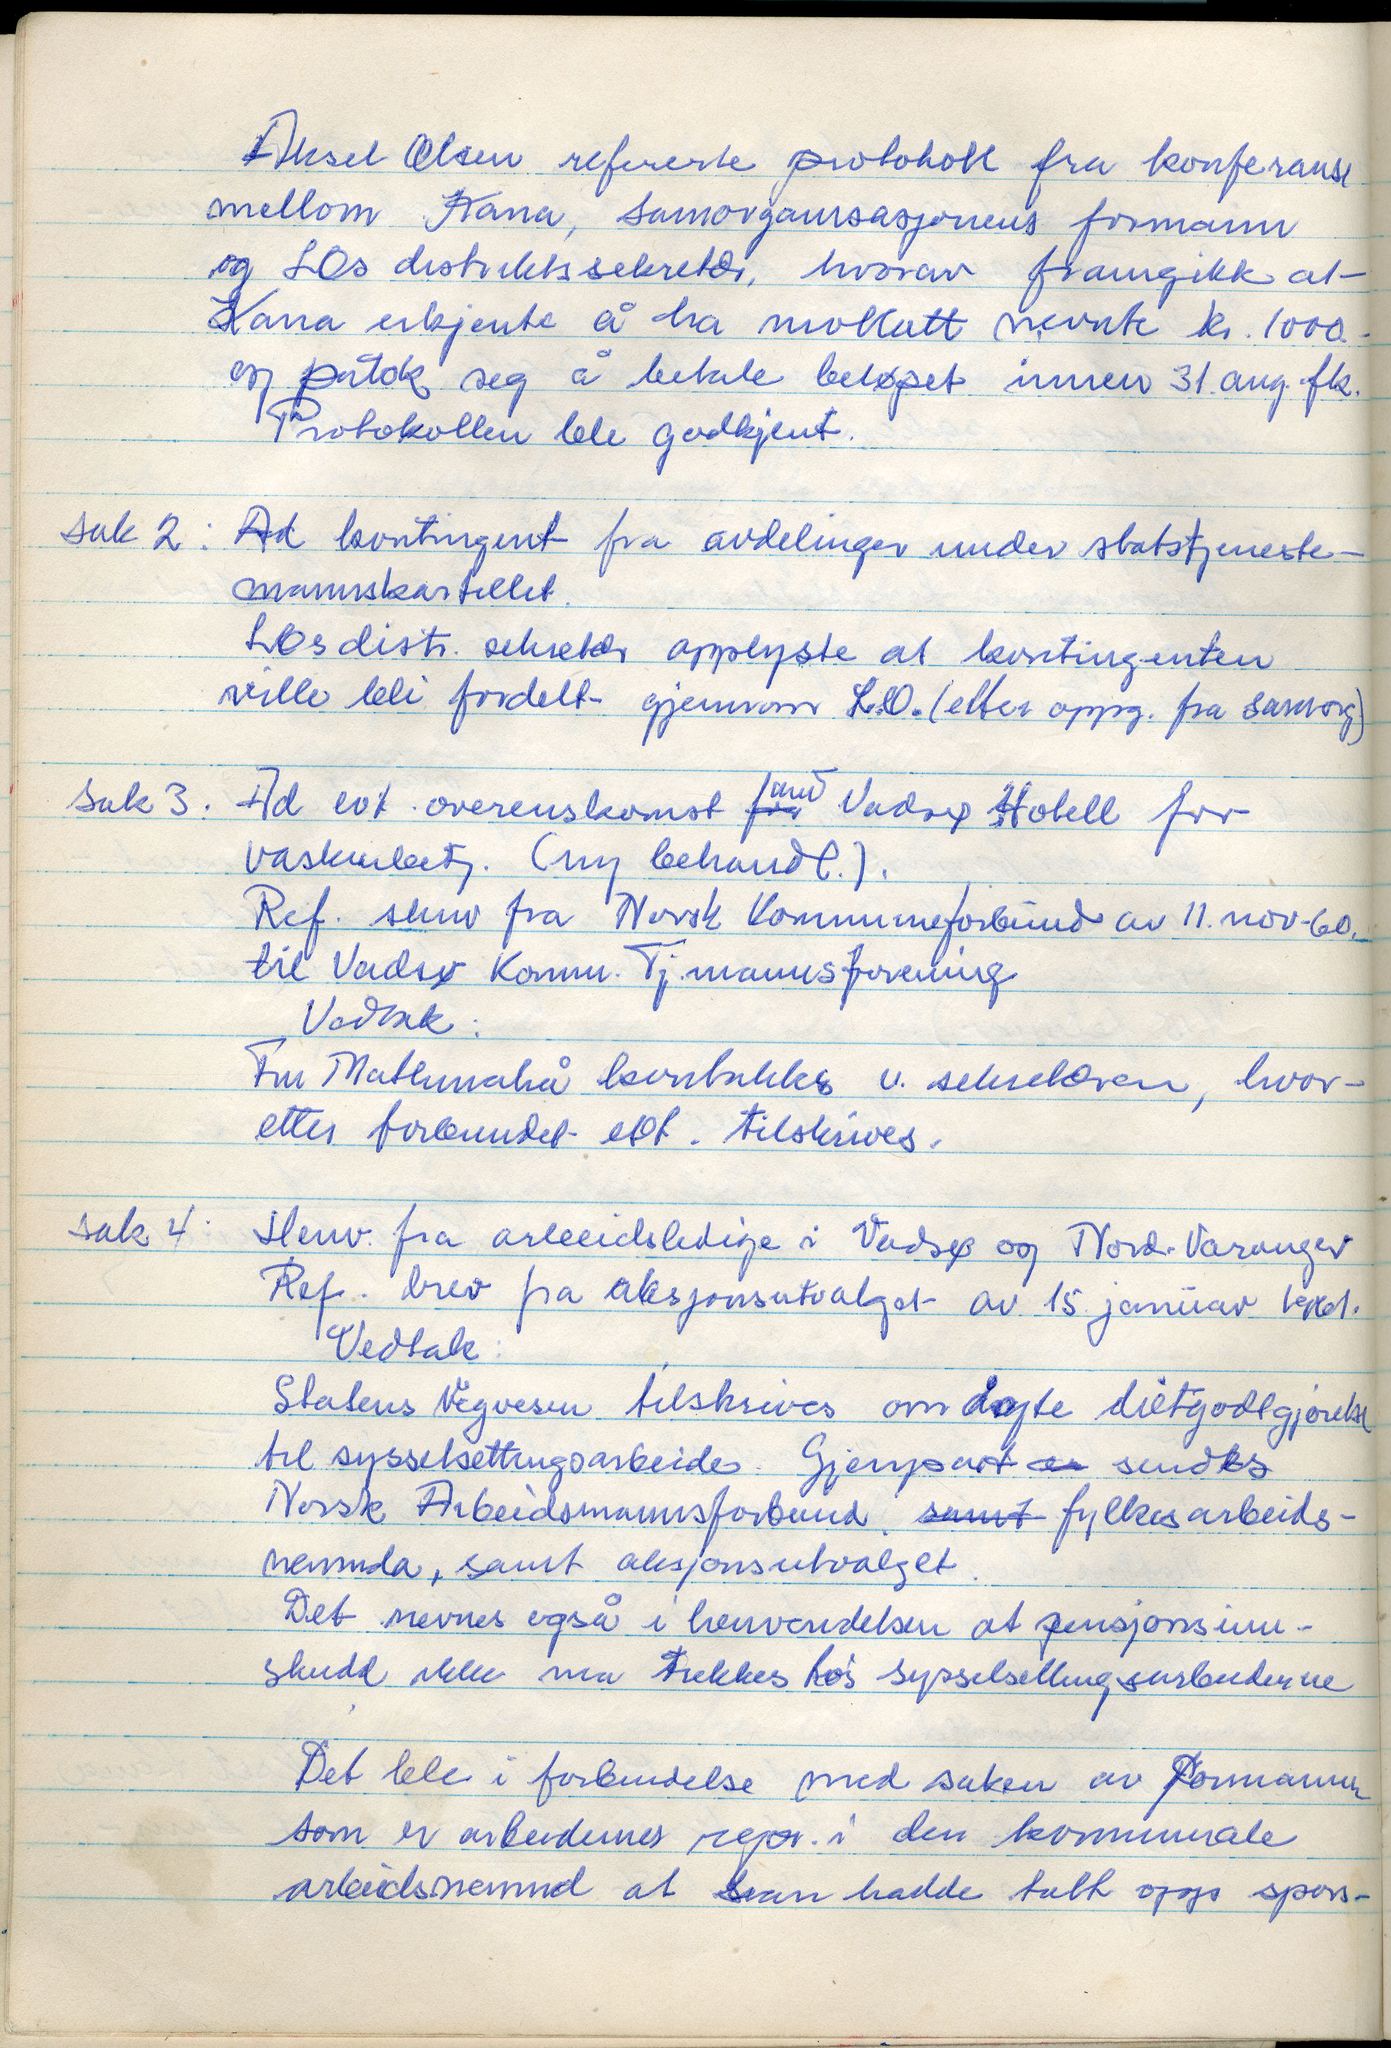 Aksel Olsen refererte protokoll fra konferanse
mellom Kana, samorganisasjonens formann
og LOs distriktssekretær, hvorav framgikk at
Kana erkjente å ha mottatt nevnte kr. 1000.-
og påtok seg å betale beløpet innen 31. aug. fk.
Protokollen ble godkjent.
Sak 2: Ad kontingent fra avdelinger under statstjeneste-
mannskartellet.
LOs distr. sekretær opplyste at kontingenten
ville bli fordelt gjennom L.O. (etter oppg. fra samorg)
Sak 3. Ad evt. overenskomst for med Vadsø Hotell for
vaskebetj. (ny behandl.).
Ref. skriv fra Norsk Kommuneforbund av 11. nov-60.
til Vadsø Komm. Tj.mannsforening
Vedtak:
Fru kontaktes v. sekretæren, hvor-
etter forbundet evt. tilskrives.
Sak 4: Henv. fra arbeidsledige i Vadsø og Nord-Varanger
Ref. brev fra aksjonsutvalget av 15. januar
Vedtak:
Statens Vegvesen tilskrives om diettgodtgjørelse
til sysselsettingsarbeider. Gjenpart sendes
Norsk Arbeidsmannsforbund, samt fylkesarbeids-
nemnda, samt aksjonsutvalget.
Det nevnes også i henvendelsen at pensjonsinn-
skudd ikke må trekkes hos sysselsettingsarbeiderne
Det ble i forbindelse med saken av Formannen
som er arbeidernes repr. i den kommunale
arbeidsnemnd at han hadde tatt opp spørs-